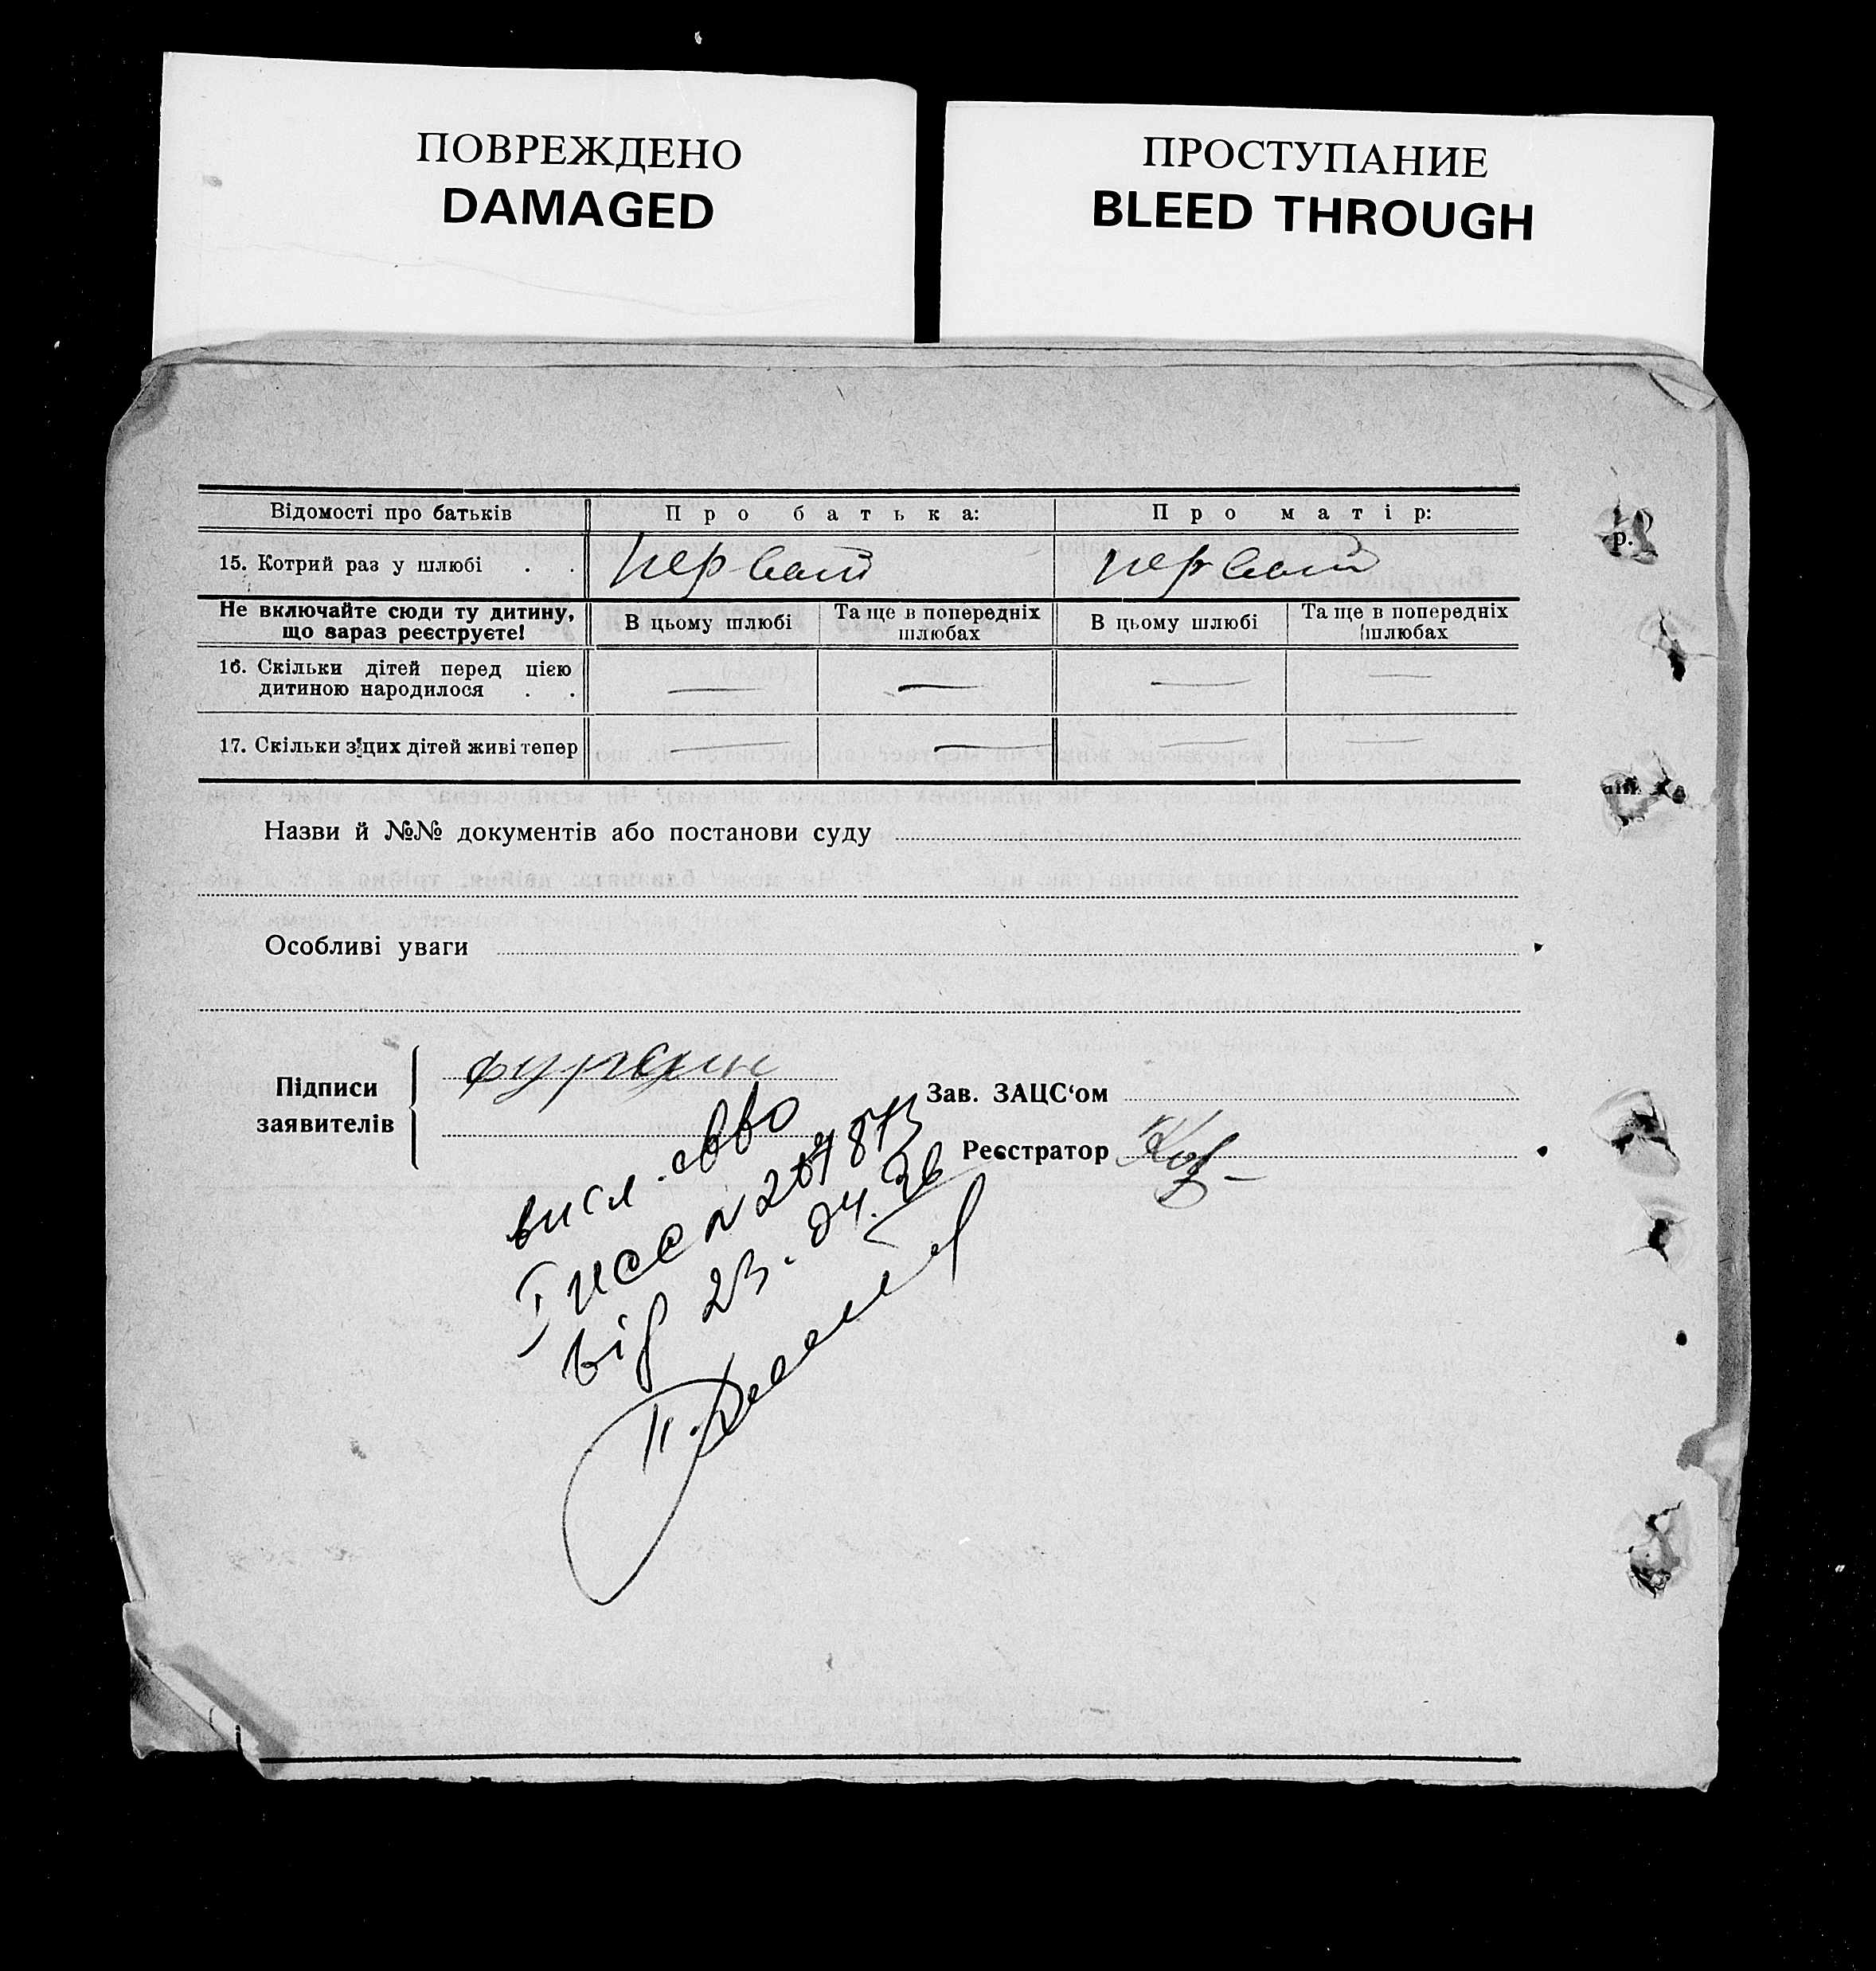 ПОВРЕЖДЕНО
DAMAGED
ПРОСТУПАНИЕ
BLEED THROUGH
Відомості про батьків
Про батька:
Про матір:
15. Котрий раз у шлюбі . .
первый
первый
Не включайте сюди ту дитину,
що зараз реєструєте!
В цьому шлюбі
Та ще в попередніх
шлюбах
В цьому шлюбі
Та ще в попередніх
шлюбах
16. Скільки дітей перед цією
дитиною народилося . .
— — — —
17. Скільки з цих дітей живі тепер
— — — —
Назви й №№ документів або постанови суду
Особливі уваги
Підписи
заявителів
Зав. ЗАЦС‘ом
Реєстратор
р.
від 23.04.96